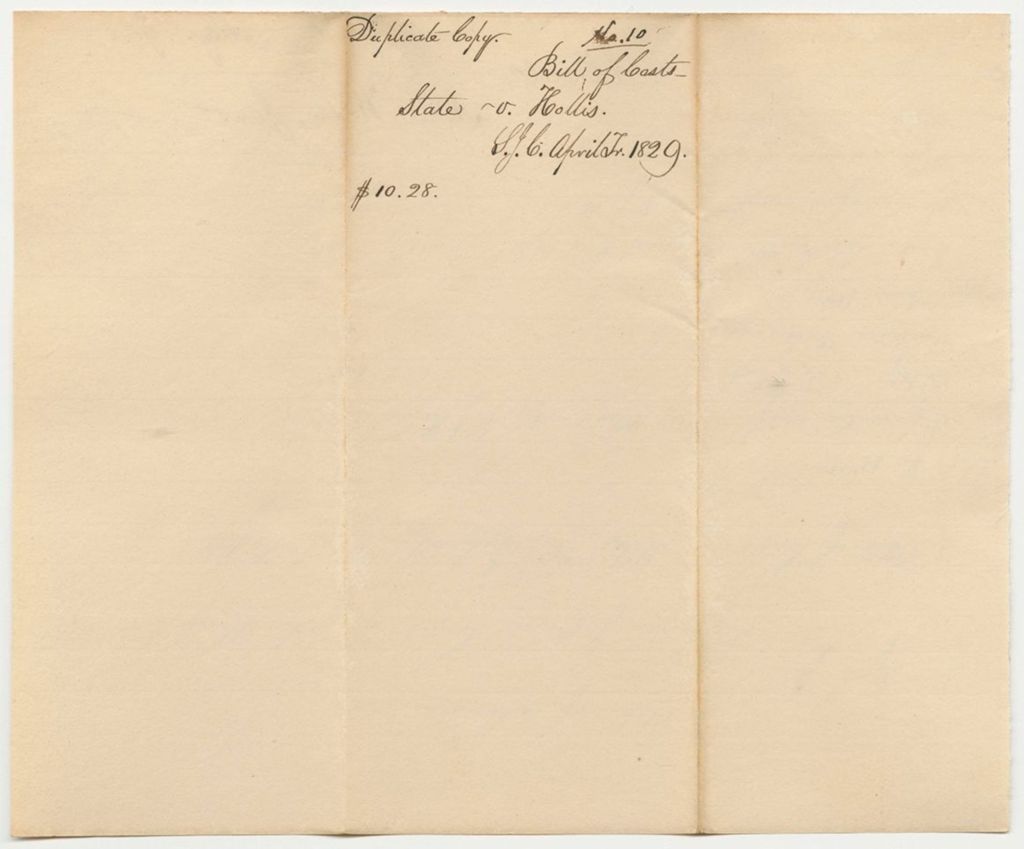 Duplicate Copy. No. 10
Bill of Costs
State v. Hollis.
S.J.C. April Tr. 1829.
$10.28.